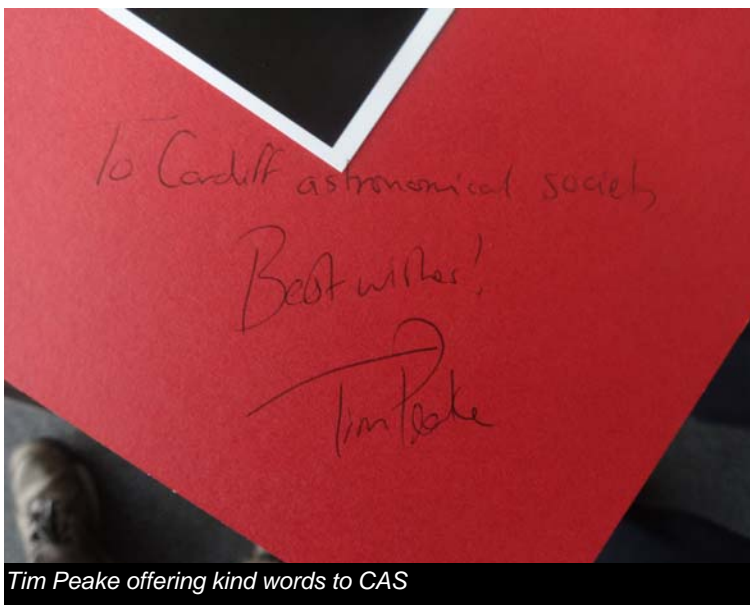 To Cardiff astronomical society
Best wishes!
Tim Peake
Tim Peake offering kind words to CAS